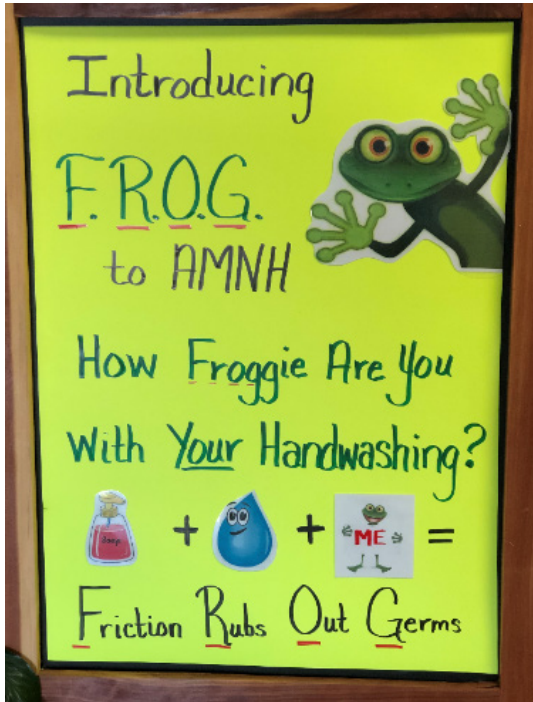 Introducing
F.R.O.G.
to AMNH
How Froggie Are You
With Your Handwashing?
Soap + + ME =
Friction Rubs Out Germs